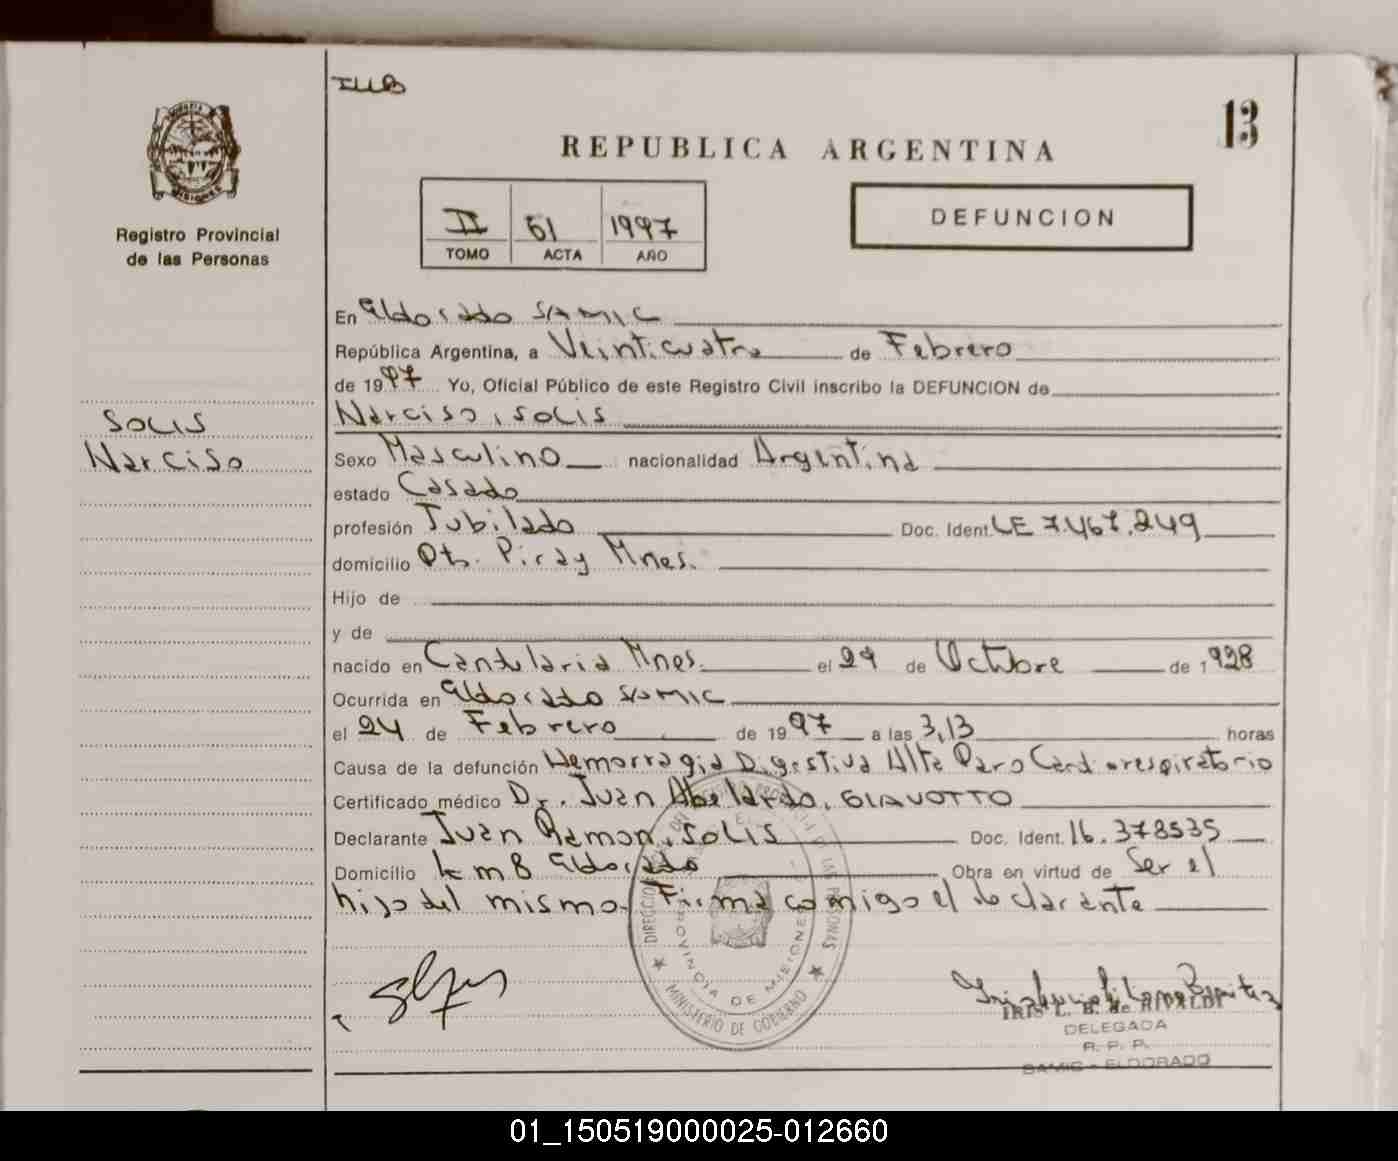 13
REPUBLICA ARGENTINA
MISIONES
Registro Provincial
de las Personas
II 51 1997
TOMO ACTA AÑO
DEFUNCION
En Eldorado SAMIC
República Argentina, a Veinticuatro de Febrero
de 1997 Yo, Oficial Público de este Registro Civil inscribo la DEFUNCION de
SOLIS
Narciso
Narciso, SOLIS
Sexo Masculino nacionalidad Argentina
estado Casado
profesión Jubilado Doc. Ident. LE 7.467.249
domicilio Pto. Piray Mnes.
Hijo de
y de
nacido en Candelaria Mnes. el 29 de Octubre de 1928
Ocurrida en Eldorado SAMIC
el 24 de Febrero de 1997 a las 3,13 horas
Causa de la defunción Hemorragia Digestiva Alta Paro Cardiorespiratorio
Certificado médico Dr. Juan Abelardo, GIAVOTTO
Declarante Juan Ramon, SOLIS Doc. Ident. 16.378535
Domicilio km 8 Eldorado Obra en virtud de Ser el
hijo del mismo. Firma comigo el declarante
PROVINCIA DE MISIONES
MINISTERIO DE GOBIERNO
DELEGADA
R. P. P.
SAMIC - ELDORADO
01_150519000025-012660